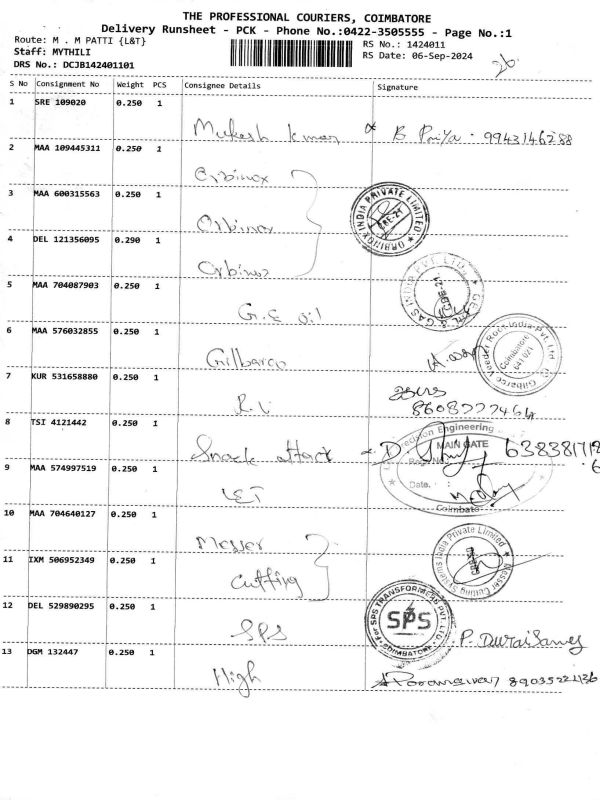 THE PROFESSIONAL COURIERS, COIMBATORE
Delivery Runsheet - PCK - Phone No.:0422-3505555 - Page No.:1
Route: M . M PATTI {L&T}
RS No.: 1424011
Staff: MYTHILI
RS Date: 06-Sep-2024
DRS No.: DCJB142401101
26
S No Consignment No Weight PCS Consignee Details Signature
1 SRE 109020 0.250 1
Mukesh Kumar B Priya . 9943146288
2 MAA 109445311 0.250 1
Orbinox
3 MAA 600315563 0.250 1
Orbinox
ORBINOX INDIA PRIVATE LIMITED
CBE-21
4 DEL 121356095 0.290 1
Orbinox
5 MAA 704087903 0.250 1
G.E oil
GAS INDIA PVT. LTD.
CBE-21
6 MAA 576032855 0.250 1
Gilbarco
Gilbarco Veeder Root India Pvt. Ltd.
Coimbatore
641 021
7 KUR 531658880 0.250 1
R.V
8608222464
8 TSI 4121442 0.250 1
Snack attack
Precision Engineering
MAIN GATE
Date. :
Coimbatore
9 MAA 574997519 0.250 1
L&T
10 MAA 704640127 0.250 1
Messer
11 IXM 506952349 0.250 1
Cutting
Messer Cutting Systems India Private Limited
12 DEL 529890295 0.250 1
SPS
For SPS TRANSFORMERS PVT. LTD.
SPS
COIMBATORE
P. Duraisamy
13 DGM 132447 0.250 1
High